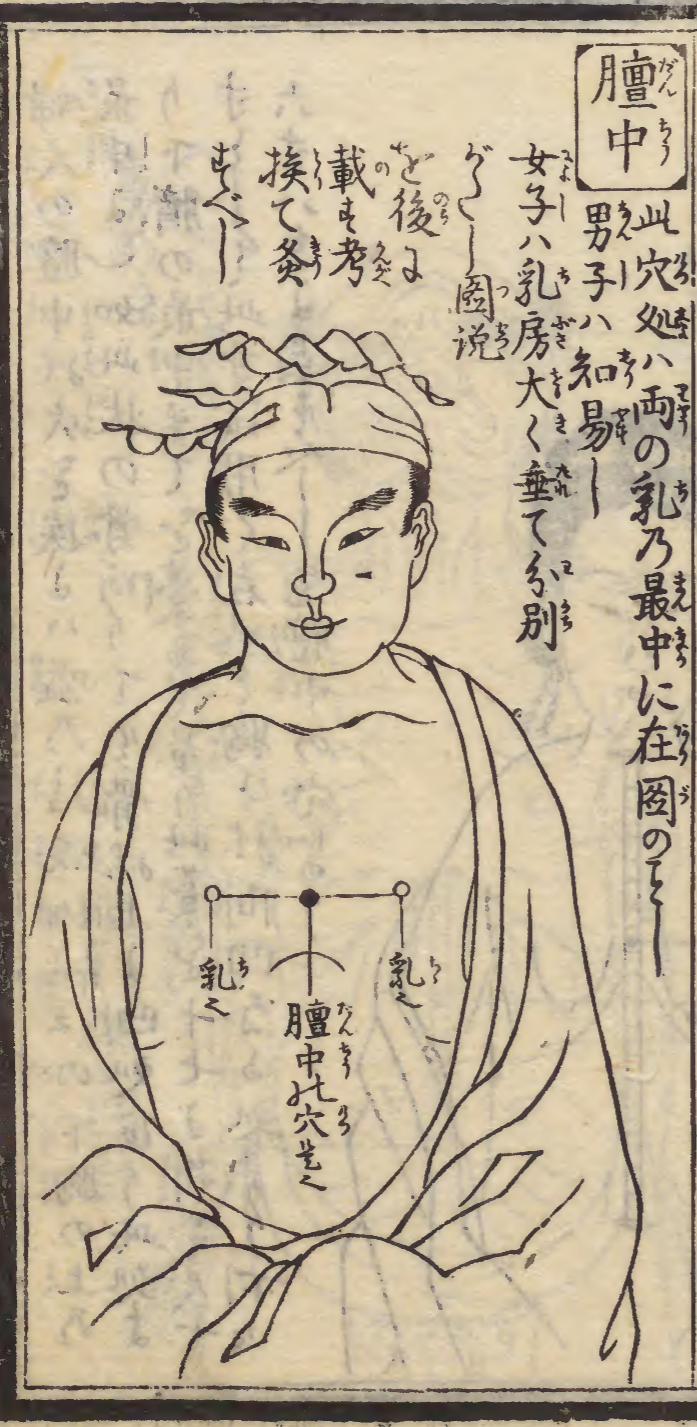 膻中
此穴処ハ両の乳乃最中に在図のごとし
男子ハ知易し
女子ハ乳房大く垂て分別
がたし図説
を後に
載す考
挨て灸
すべし
乳之
乳之
膻中の穴是之